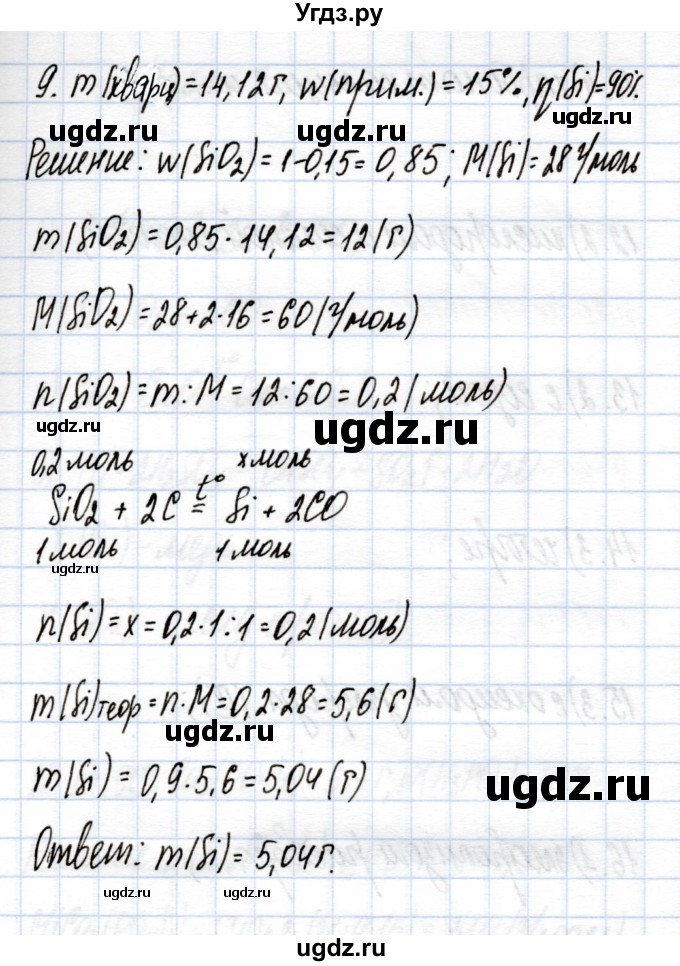 Угдз.ру
9. m(кварц)=14,12г, w(прим.)=15%, η(Si)=90%.
ugdz.ru ugdz.ru
Решение: w(SiO2)=1-0,15=0,85; M(Si)=28 г/моль
m(SiO2)=0,85·14,12=12(г)
M(SiO2)=28+2·16=60(г/моль)
n(SiO2)=m:M=12:60=0,2(моль)
ugdz.ru ugdz.ru
0,2моль x моль
SiO2 + 2C t°= Si + 2CO
1 моль 1 моль
ugdz.ru
n(Si)=x=0,2·1:1=0,2(моль)
m(Si)теор=n·M=0,2·28=5,6(г)
ugdz.ru
m(Si)=0,9·5,6=5,04(г)
ugdz.ru
Ответ: m(Si)=5,04г.
ugdz.ru
ugdz.ru